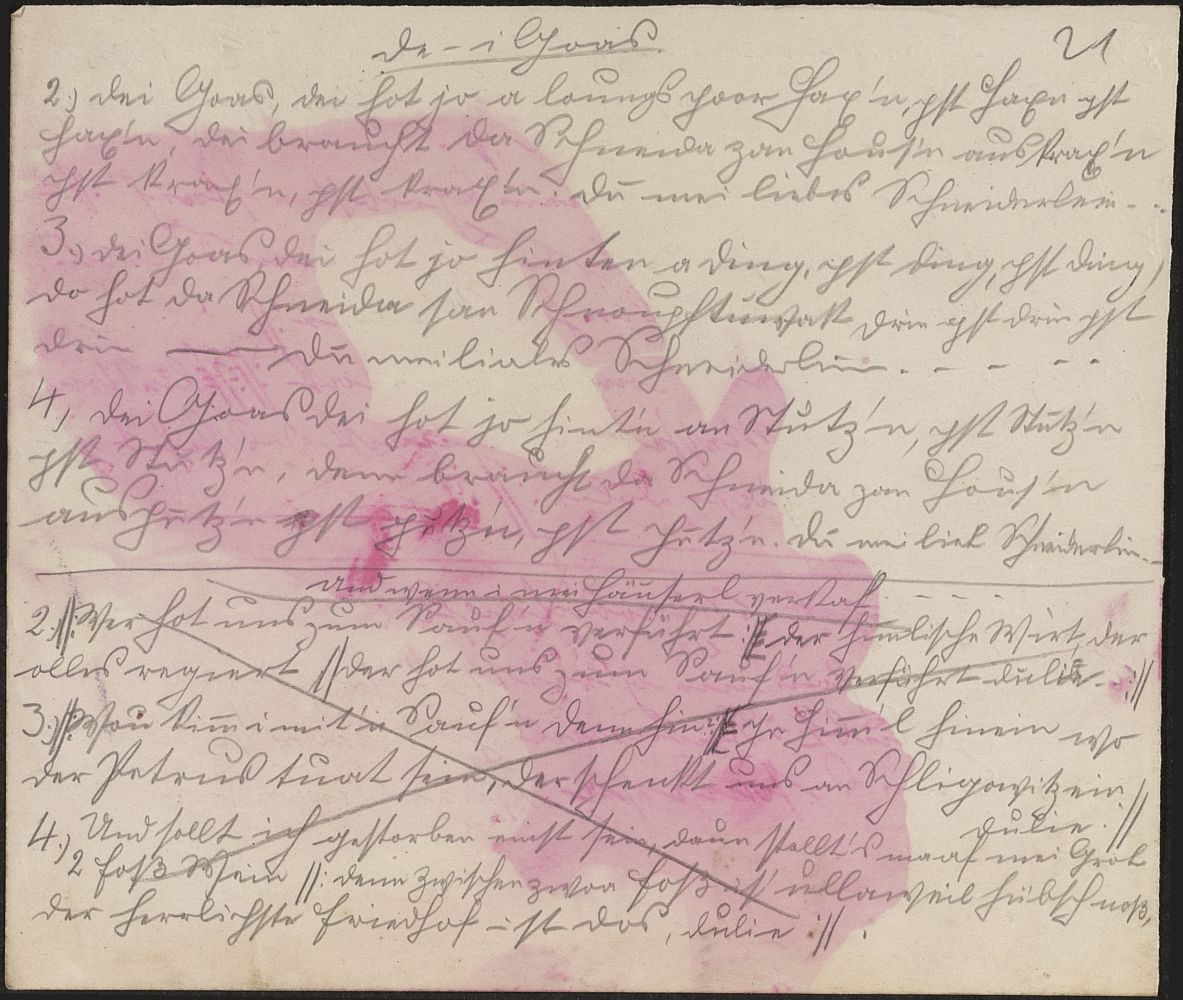 de - i Goas
21
2.) dei Goas, dei hot jo a loungs poor Hax'n, pst Haxn pst
Hax'n, dei braucht da Schneida zan Hous'n auskrax'n
pst krax'n, pst krax'n. Du mei liebes Schneiderlein - . .
3.) dei Goas, dei hot jo hinten a ding, pst ding, pst ding,
do hot da Schneida san Schnoupftuwak drin pst drin pst
drin — Du mei liabes Schneiderlein. - - - -
4, dei Goas dei hot jo hint'n an Stutz'n, pst Stutz'n
pst Stutz'n, denn braucht da Schneida zan Hous'n
ausputz'n pst putz'n, pst putz'n. Du mei lieb Schneiderlein. -
Und wenn i mei Häuserl verkaf - - - -
2.) //: Wer hot uns zum Sauf'n verführt :// der himlische Wirt, der
olles regiert // der hot uns zum Sauf'n verführt dulie. ://
3.) //: Wou kimm i mit'n Sauf'n denn hin? :// In Himm'l hinein wo
der Petrus tuat sein, der schenkt uns an Schligowitz ein
dulie. //
4.) Und sollt ich gestorben einst sein, dann stellt's ma af mei Grob
2 Foß Wein //: denn zwischen zwoa Foß is' ullaweil hübsch noß,
der herrlichste Friedhof - ist dos, dulie ://.